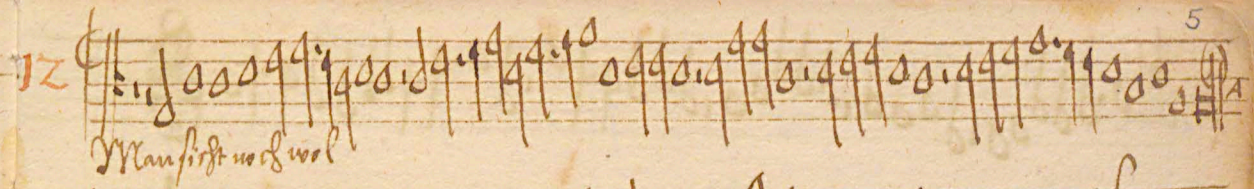 5
12
Man sicht noch wol